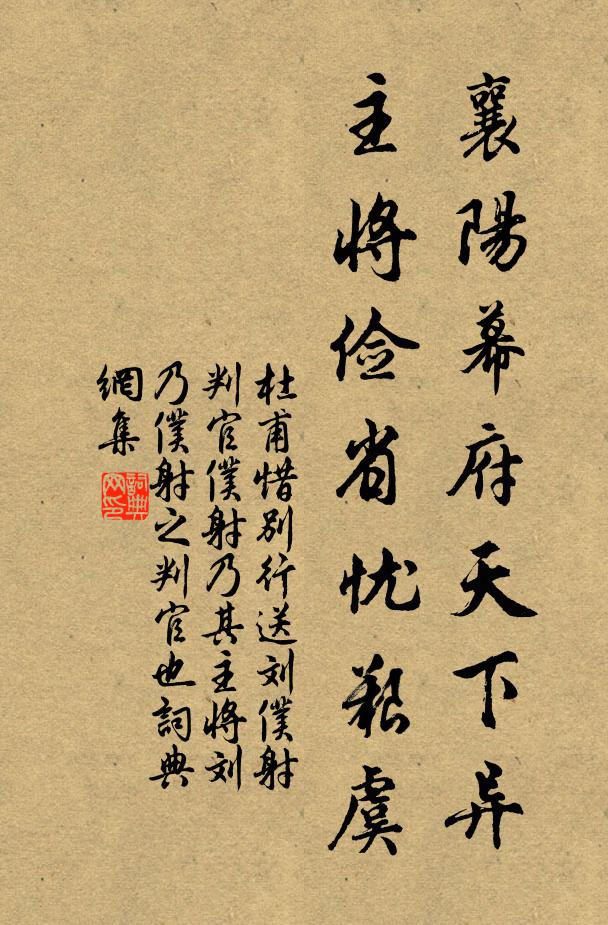 襄陽幕府天下异
主将俭省忧艰虞
杜甫惜别行送刘僕射
判官僕射乃其主将刘
乃僕射之判官也詞典
網集
詞典網印